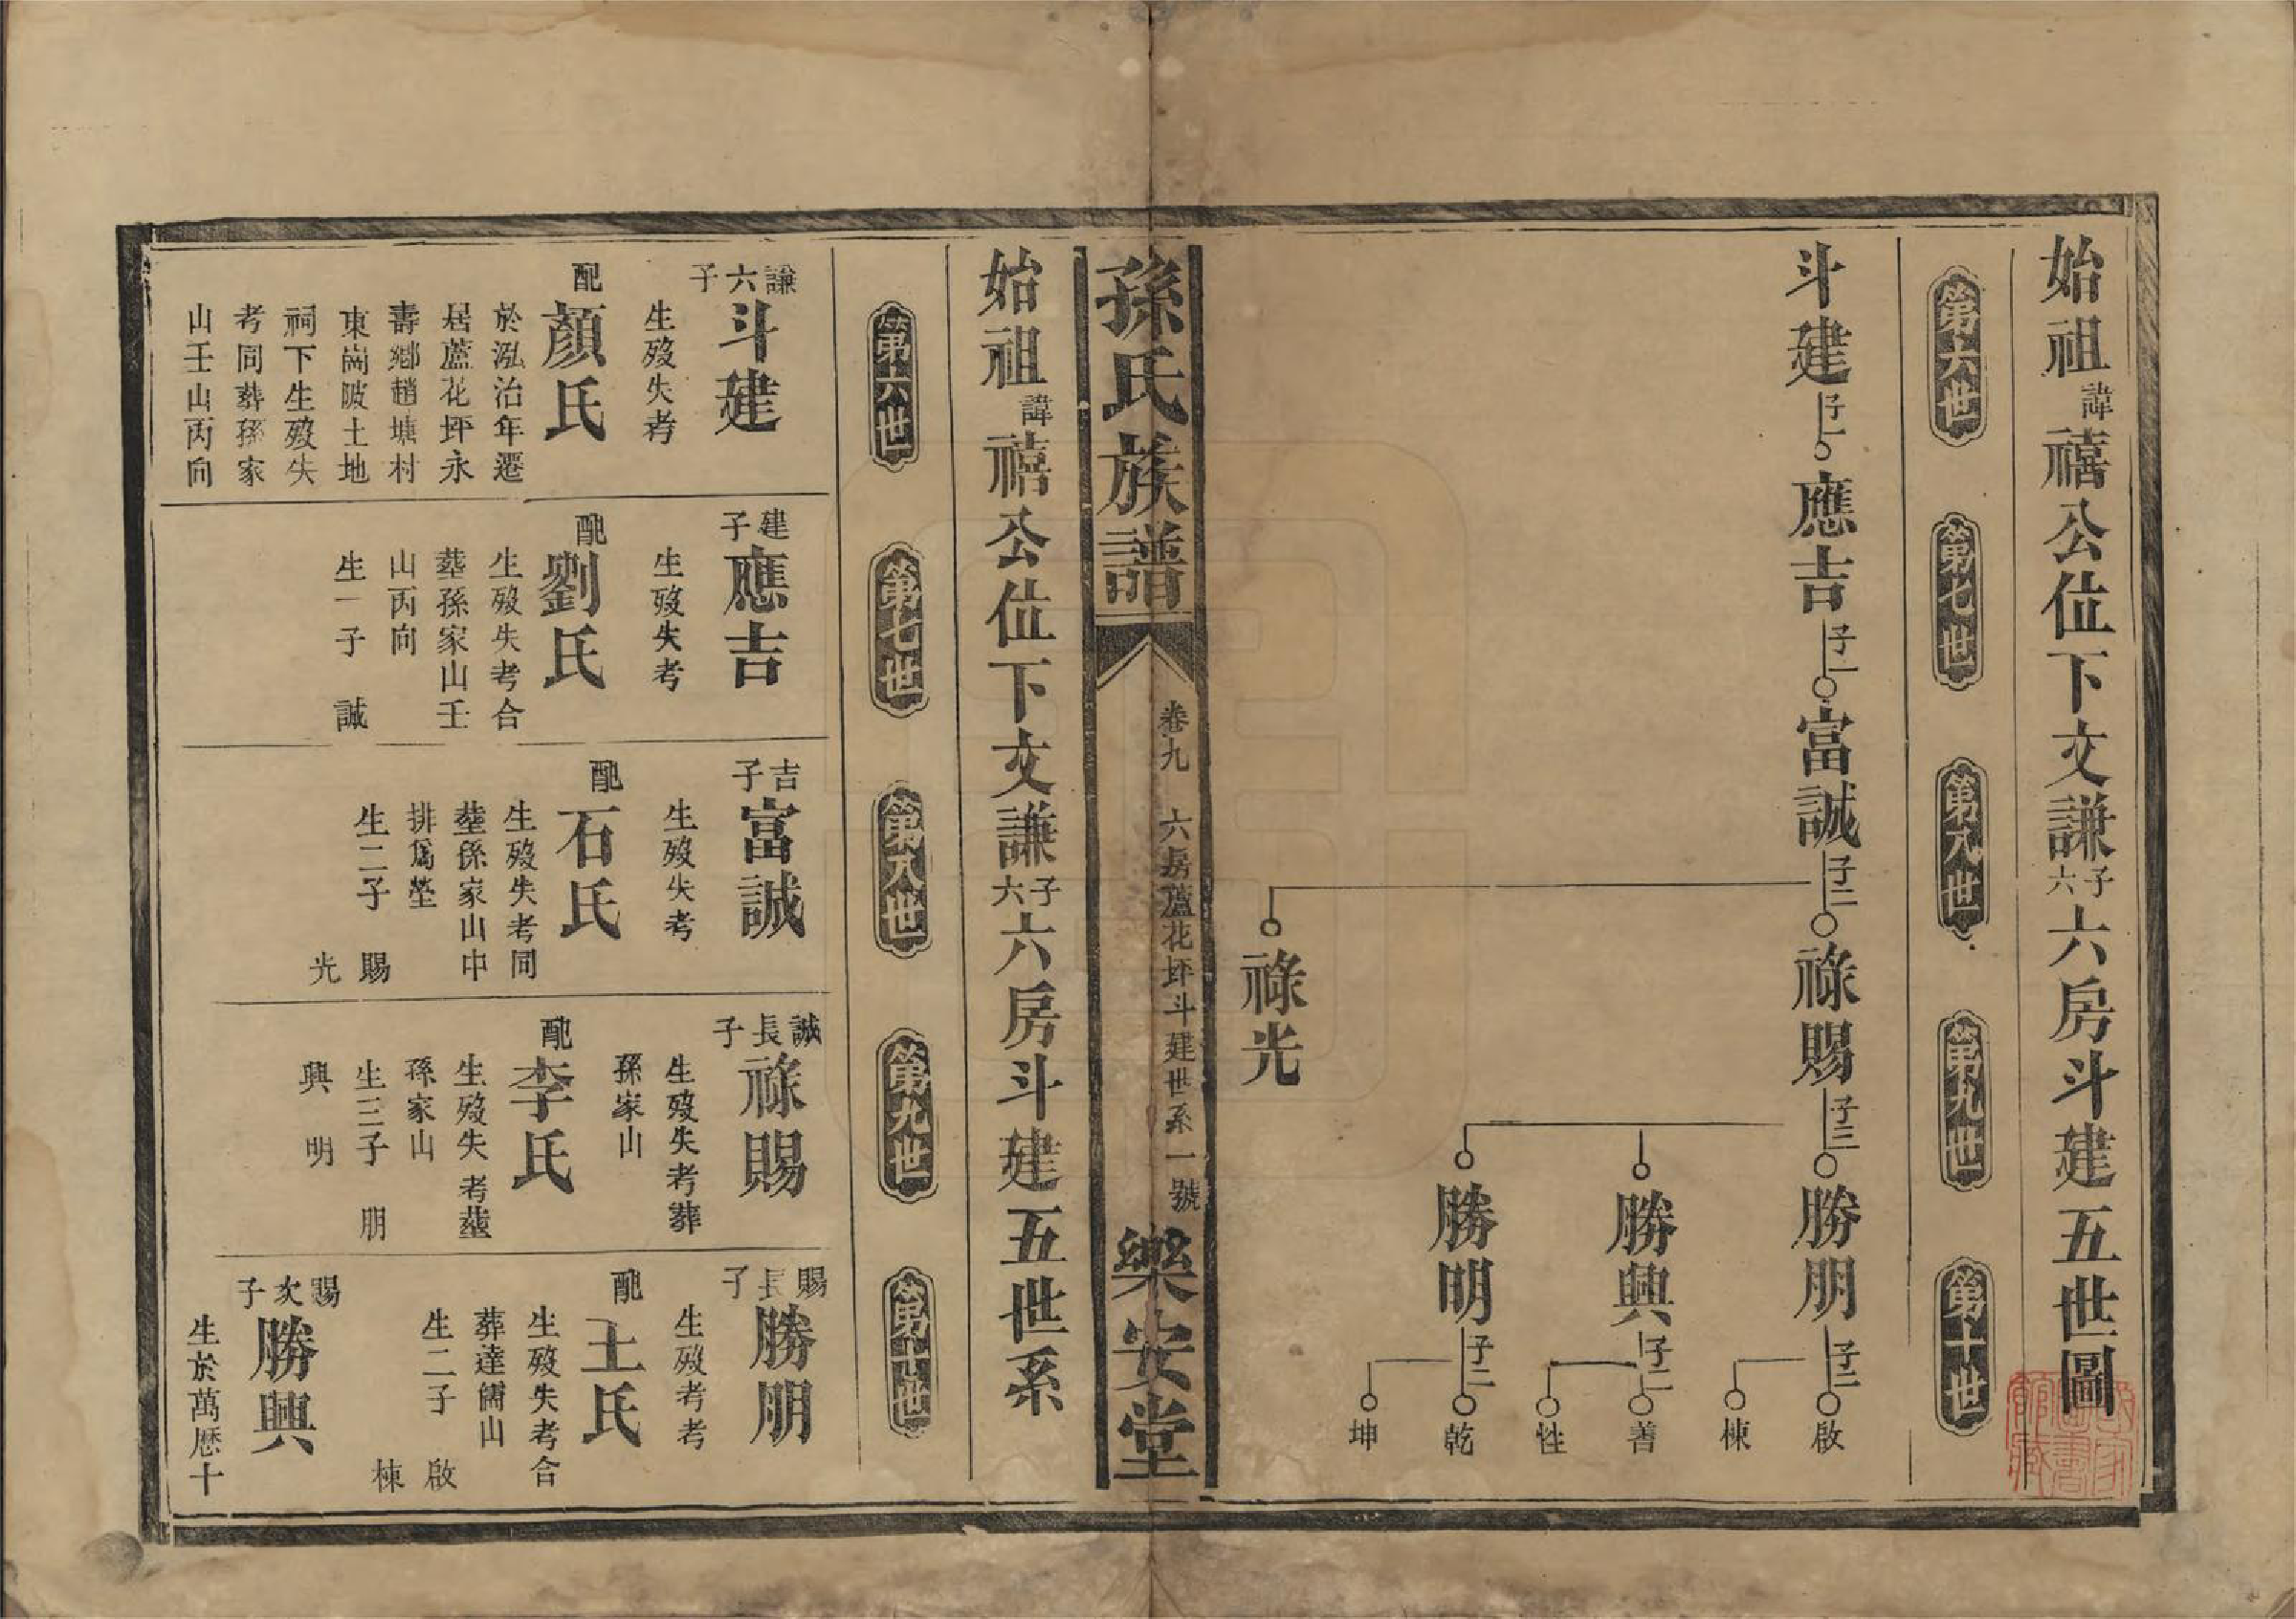 始祖諱禧公位下文謙六子六房斗建五世圖
第六世
第七世
第八世
第九世
第十世
斗建 子一
應吉 子一
富誠 子二
祿賜 子三
勝朋 子二
啟
棟
勝興 子二
善
性
勝明 子二
乾
坤
祿光
孫氏族譜
卷九
六房蘆花坪斗建世系一號
樂安堂
始祖諱禧公位下文謙六子六房斗建五世系
第六世
第七世
第八世
第九世
第十世
謙六子
斗建
生歿失考
配
顏氏
於泓治年遷
居蘆花坪永
壽鄉趙塘村
東崗陂土地
祠下生歿失
考同葬孫家
山壬山丙向
建子
應吉
生歿失考
配
劉氏
生歿失考合
塟孫家山壬
山丙向
生一子 誠
吉子
富誠
生歿失考
配
石氏
生歿失考同
塟孫家山中
排爲塋
生二子 賜
光
誠長子
祿賜
生歿失考葬
孫家山
配
李氏
生歿失考塟
孫家山
生三子 朋
興 明
賜長子
勝朋
生歿考考
配
王氏
生歿失考合
葬達儒山
生二子 啟
棟
賜次子
勝興
生於萬歷十